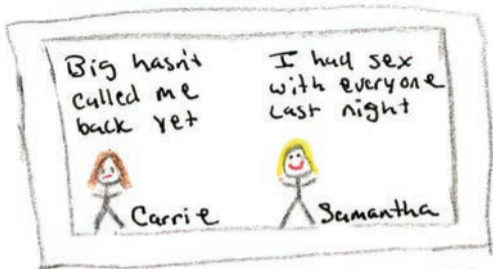 Big hasn't
called me
back yet
Carrie
I had sex
with everyone
last night
Samantha